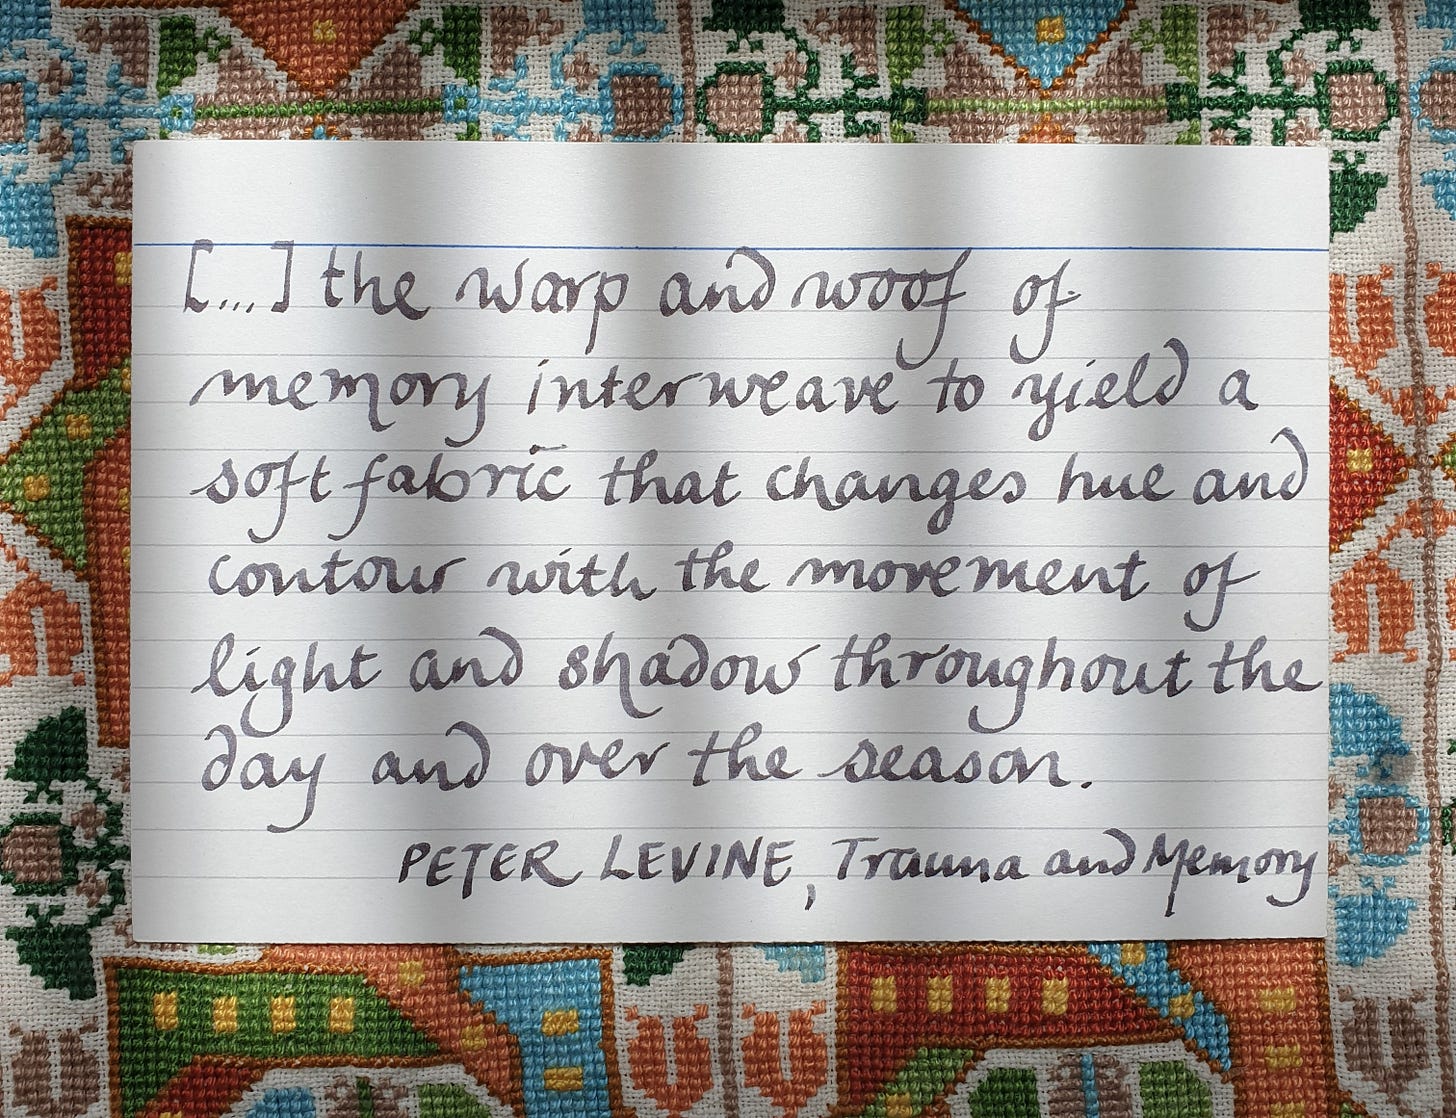 [...] the warp and woof of
memory interweave to yield a
soft fabric that changes hue and
contour with the movement of
light and shadow throughout the
day and over the season.
PETER LEVINE, Trauma and Memory